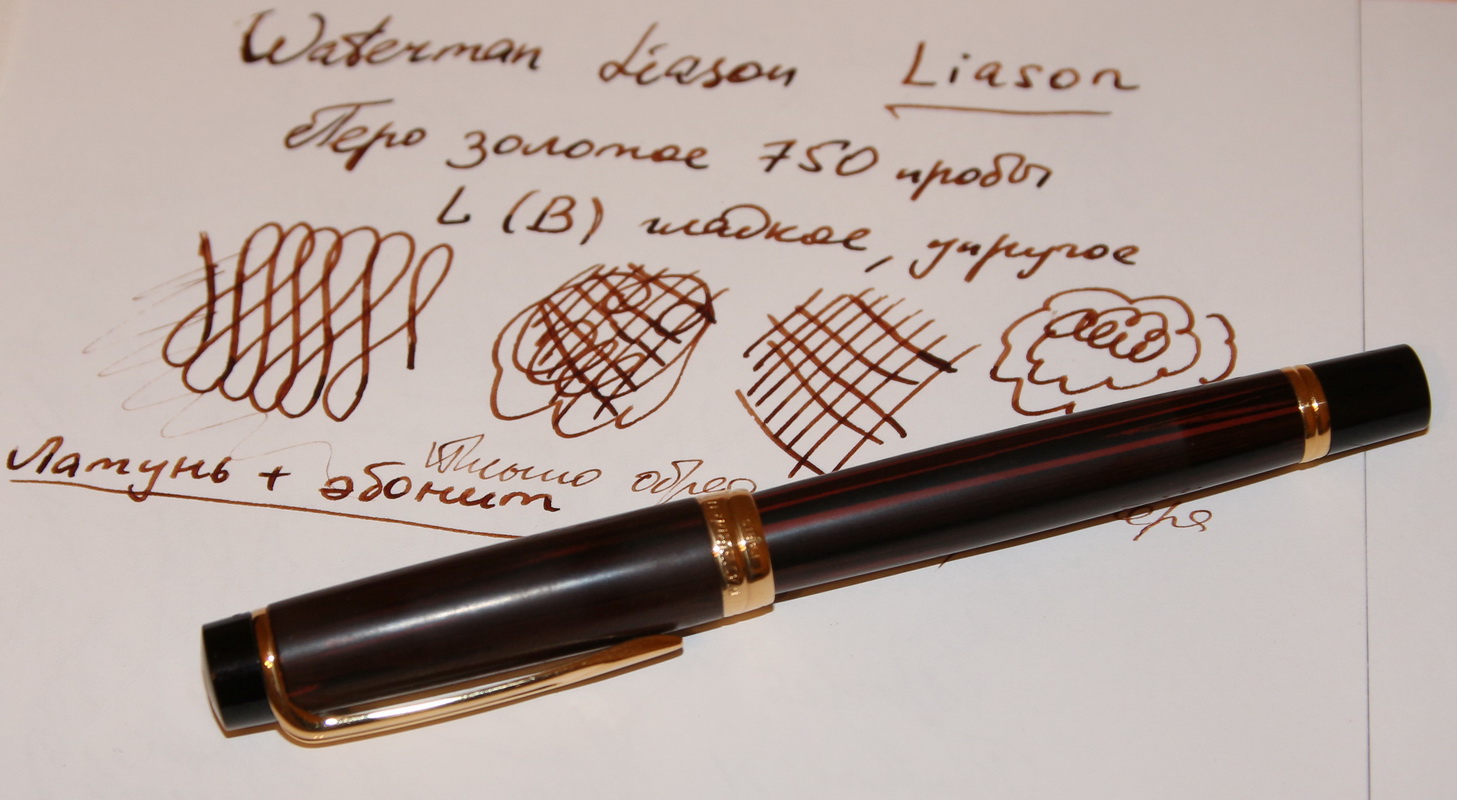 Waterman Liason Liason
Перо золотое 750 пробы
L (B) гладкое, упругое
Латунь + эбонит